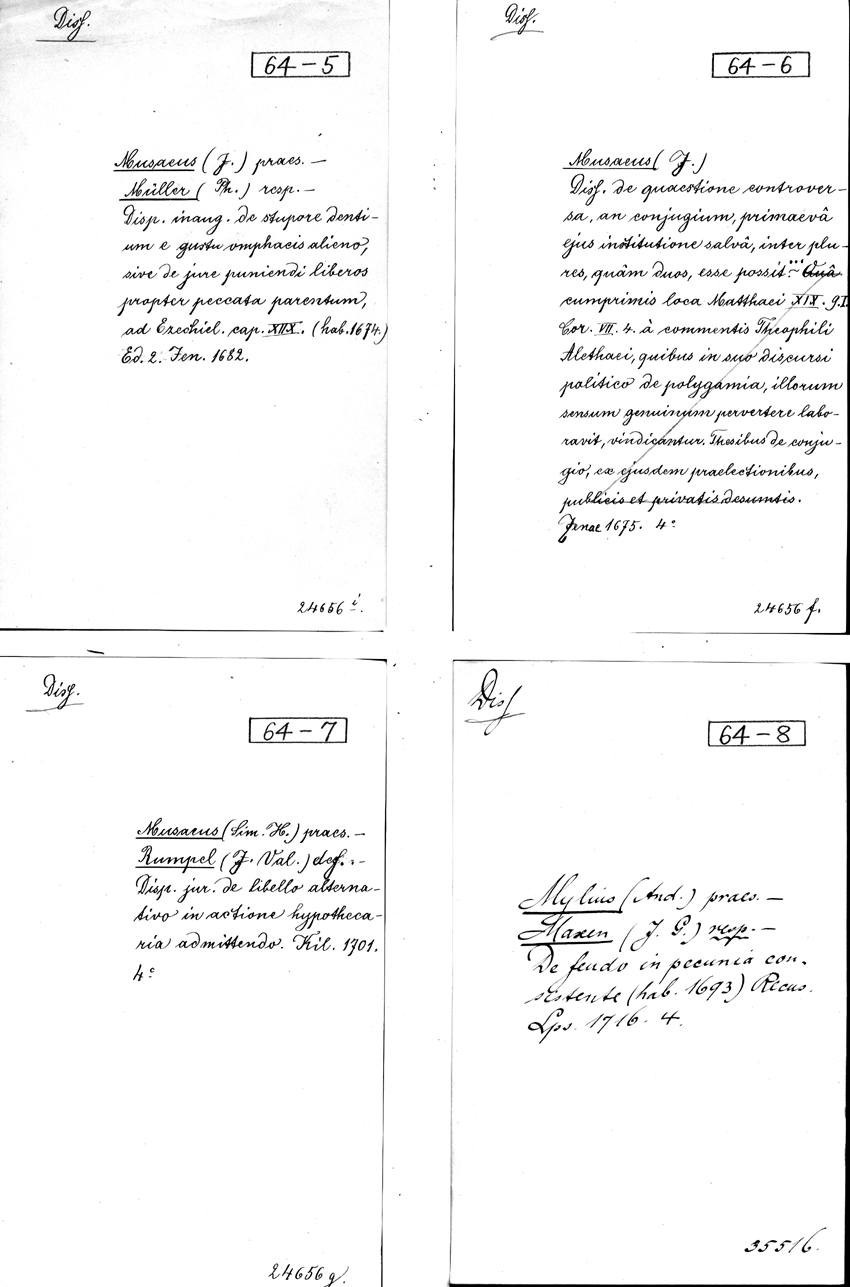 Diss.
64-5
Musaeus (J.) praes. —
Müller (Ph.) resp. —
Disp. inaug. de stupore denti-
um e gustu omphacis alieno,
sive de jure puniendi liberos
propter peccata parentum,
ad Ezechiel. cap. XIIX. (hab. 1674.)
Ed. 2. Jen. 1682.
24656 i.
Diss.
64-6
Musaeus (J.)
Diss. de quaestione controver-
sa, an conjugium, primaevâ
ejus institutione salvâ, inter plu-
res, quâm duos, esse possit ... Quâ
cumprimis loca Matthaei XIX. 9. I.
Cor. VII. 4. à commentis Theophili
Alethaei, quibus in suo discursi
politico de polygamia, illorum
sensum genuinum pervertere labo-
ravit, vindicantur. Thesibus de conju-
gio, ex ejusdem praelectionibus,
publicis et privatis desumtis.
Jenae 1675. 4°
24656 f.
Diss.
64-7
Musaeus (Sim. H.) praes. —
Rumpel (J. Val.) def. -
Disp. jur. de libello alterna-
tivo in actione hypotheca-
ria admittendo. Kil. 1701.
4°
24656 g.
Diss
64-8
Mylius (And.) praes. —
Maxen (J. G.) resp. —
De feudo in pecunia con-
sistente (hab. 1693) Recus.
Lps. 1716. 4.
35516.